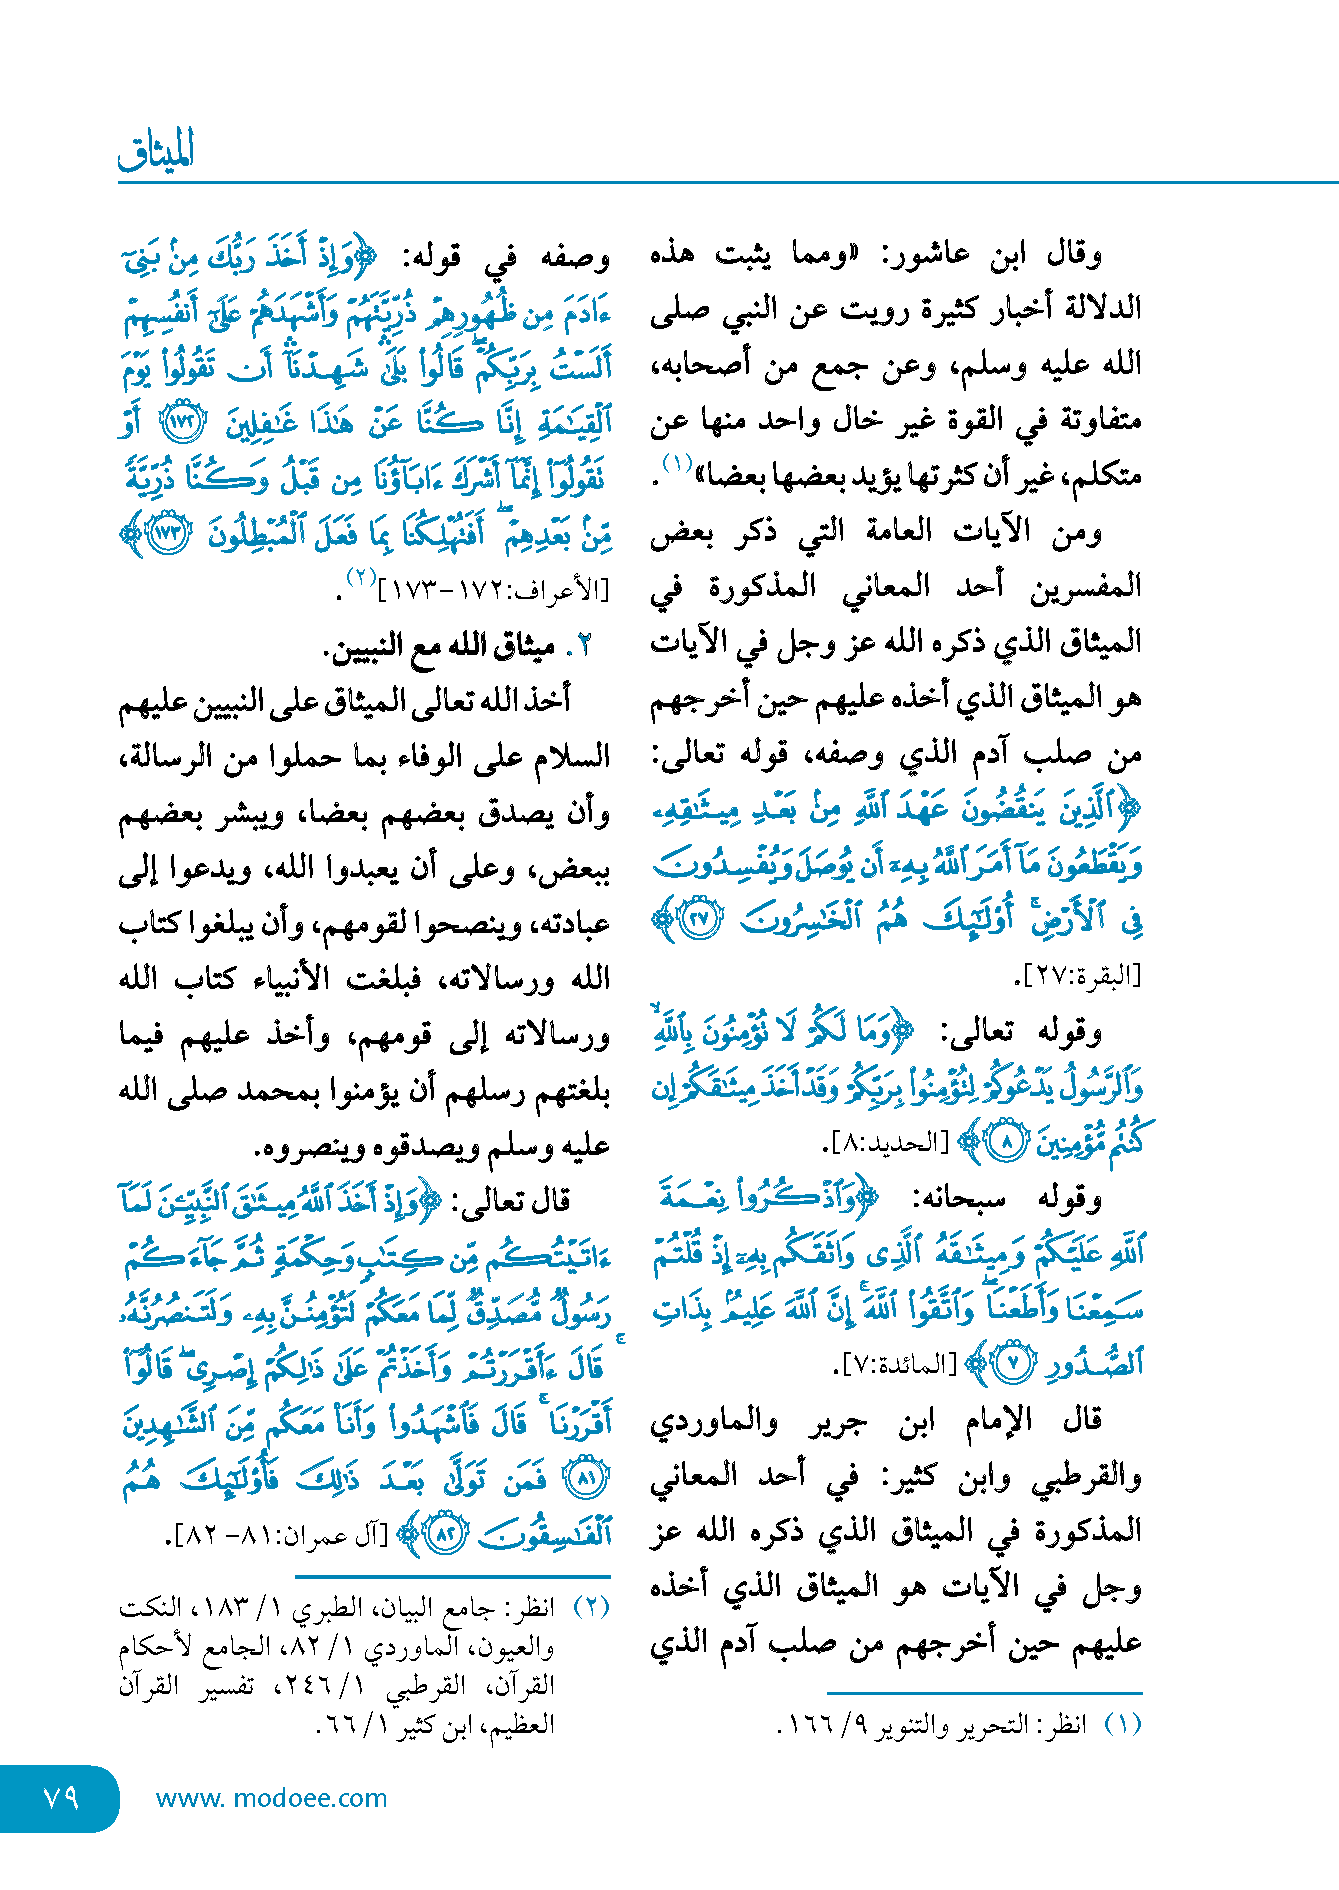 الميثاق
وقال ابن عاشور: «ومما يثبت هذه
الدلالة أخبار كثيرة رويت عن النبي صلى
الله عليه وسلم، وعن جمع من أصحابه،
متفاوتة في القوة غير خال واحد منها عن
متكلم، غير أن كثرتها يؤيد بعضها بعضا»(١).
ومن الآيات العامة التي ذكر بعض
المفسرين أحد المعاني المذكورة في
الميثاق الذي ذكره الله عز وجل في الآيات
هو الميثاق الذي أخذه عليهم حين أخرجهم
من صلب آدم الذي وصفه، قوله تعالى:
﴿ٱلَّذِينَ يَنقُضُونَ عَهْدَ ٱللَّهِ مِنۢ بَعْدِ مِيثَـٰقِهِۦ
وَيَقْطَعُونَ مَآ أَمَرَ ٱللَّهُ بِهِۦٓ أَن يُوصَلَ وَيُفْسِدُونَ
فِى ٱلْأَرْضِ ۚ أُو۟لَـٰٓئِكَ هُمُ ٱلْخَـٰسِرُونَ ٢٧﴾
[البقرة:٢٧].
وقوله تعالى: ﴿وَمَا لَكُمْ لَا تُؤْمِنُونَ بِٱللَّهِ ۙ
وَٱلرَّسُولُ يَدْعُوكُمْ لِتُؤْمِنُوا۟ بِرَبِّكُمْ وَقَدْ أَخَذَ مِيثَـٰقَكُمْ إِن
كُنتُم مُّؤْمِنِينَ ٨﴾ [الحديد:٨].
وقوله سبحانه: ﴿وَٱذْكُرُوا۟ نِعْمَةَ
ٱللَّهِ عَلَيْكُمْ وَمِيثَـٰقَهُ ٱلَّذِى وَاثَقَكُم بِهِۦٓ إِذْ قُلْتُمْ
سَمِعْنَا وَأَطَعْنَا ۖ وَٱتَّقُوا۟ ٱللَّهَ ۚ إِنَّ ٱللَّهَ عَلِيمٌۢ بِذَاتِ
ٱلصُّدُورِ ٧﴾ [المائدة:٧].
قال الإمام ابن جرير والماوردي
والقرطبي وابن كثير: في أحد المعاني
المذكورة في الميثاق الذي ذكره الله عز
وجل في الآيات هو الميثاق الذي أخذه
عليهم حين أخرجهم من صلب آدم الذي
(١) انظر: التحرير والتنوير ٩/ ١٦٦.
وصفه في قوله: ﴿وَإِذْ أَخَذَ رَبُّكَ مِنۢ بَنِىٓ
ءَادَمَ مِن ظُهُورِهِمْ ذُرِّيَّتَهُمْ وَأَشْهَدَهُمْ عَلَىٰٓ أَنفُسِهِمْ
أَلَسْتُ بِرَبِّكُمْ ۖ قَالُوا۟ بَلَىٰ ۛ شَهِدْنَآ ۛ أَن تَقُولُوا۟ يَوْمَ
ٱلْقِيَـٰمَةِ إِنَّا كُنَّا عَنْ هَـٰذَا غَـٰفِلِينَ ١٧٢ أَوْ
تَقُولُوٓا۟ إِنَّمَآ أَشْرَكَ ءَابَآؤُنَا مِن قَبْلُ وَكُنَّا ذُرِّيَّةً
مِّنۢ بَعْدِهِمْ ۖ أَفَتُهْلِكُنَا بِمَا فَعَلَ ٱلْمُبْطِلُونَ ١٧٣﴾
[الأعراف:١٧٢-١٧٣](٢).
٢. ميثاق الله مع النبيين.
أخذ الله تعالى الميثاق على النبيين عليهم
السلام على الوفاء بما حملوا من الرسالة،
وأن يصدق بعضهم بعضا، ويبشر بعضهم
ببعض، وعلى أن يعبدوا الله، ويدعوا إلى
عبادته، وينصحوا لقومهم، وأن يبلغوا كتاب
الله ورسالاته، فبلغت الأنبياء كتاب الله
ورسالاته إلى قومهم، وأخذ عليهم فيما
بلغتهم رسلهم أن يؤمنوا بمحمد صلى الله
عليه وسلم ويصدقوه وينصروه.
قال تعالى: ﴿وَإِذْ أَخَذَ ٱللَّهُ مِيثَـٰقَ ٱلنَّبِيِّـۧنَ لَمَآ
ءَاتَيْتُكُم مِّن كِتَـٰبٍ وَحِكْمَةٍ ثُمَّ جَآءَكُمْ
رَسُولٌ مُّصَدِّقٌ لِّمَا مَعَكُمْ لَتُؤْمِنُنَّ بِهِۦ وَلَتَنصُرُنَّهُۥ
ۚ قَالَ ءَأَقْرَرْتُمْ وَأَخَذْتُمْ عَلَىٰ ذَٰلِكُمْ إِصْرِى ۖ قَالُوٓا۟
أَقْرَرْنَا ۚ قَالَ فَٱشْهَدُوا۟ وَأَنَا۠ مَعَكُم مِّنَ ٱلشَّـٰهِدِينَ
٨١ فَمَن تَوَلَّىٰ بَعْدَ ذَٰلِكَ فَأُو۟لَـٰٓئِكَ هُمُ
ٱلْفَـٰسِقُونَ ٨٢﴾ [آل عمران:٨١- ٨٢].
(٢) انظر: جامع البيان، الطبري ١/ ١٨٣، النكت
والعيون، الماوردي ١/ ٨٢، الجامع لأحكام
القرآن، القرطبي ١/ ٢٤٦، تفسير القرآن
العظيم، ابن كثير ١/ ٦٦.
٧٩
www. modoee.com